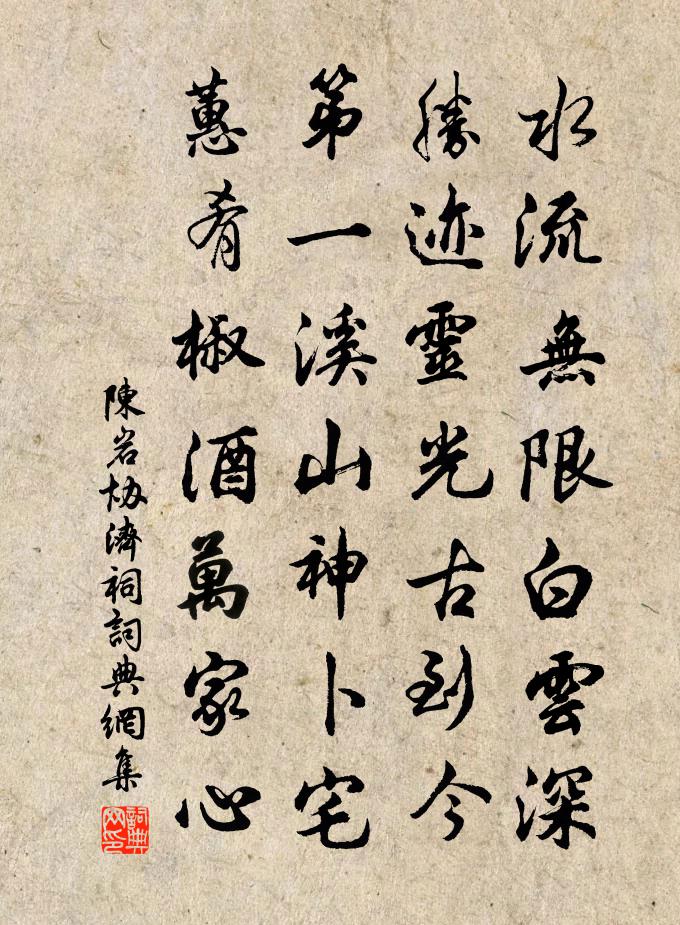 水流無限白雲深
勝迹靈光古到今
第一溪山神卜宅
蕙肴椒酒萬家心
陳岩協濟祠詞典網集
詞典网印